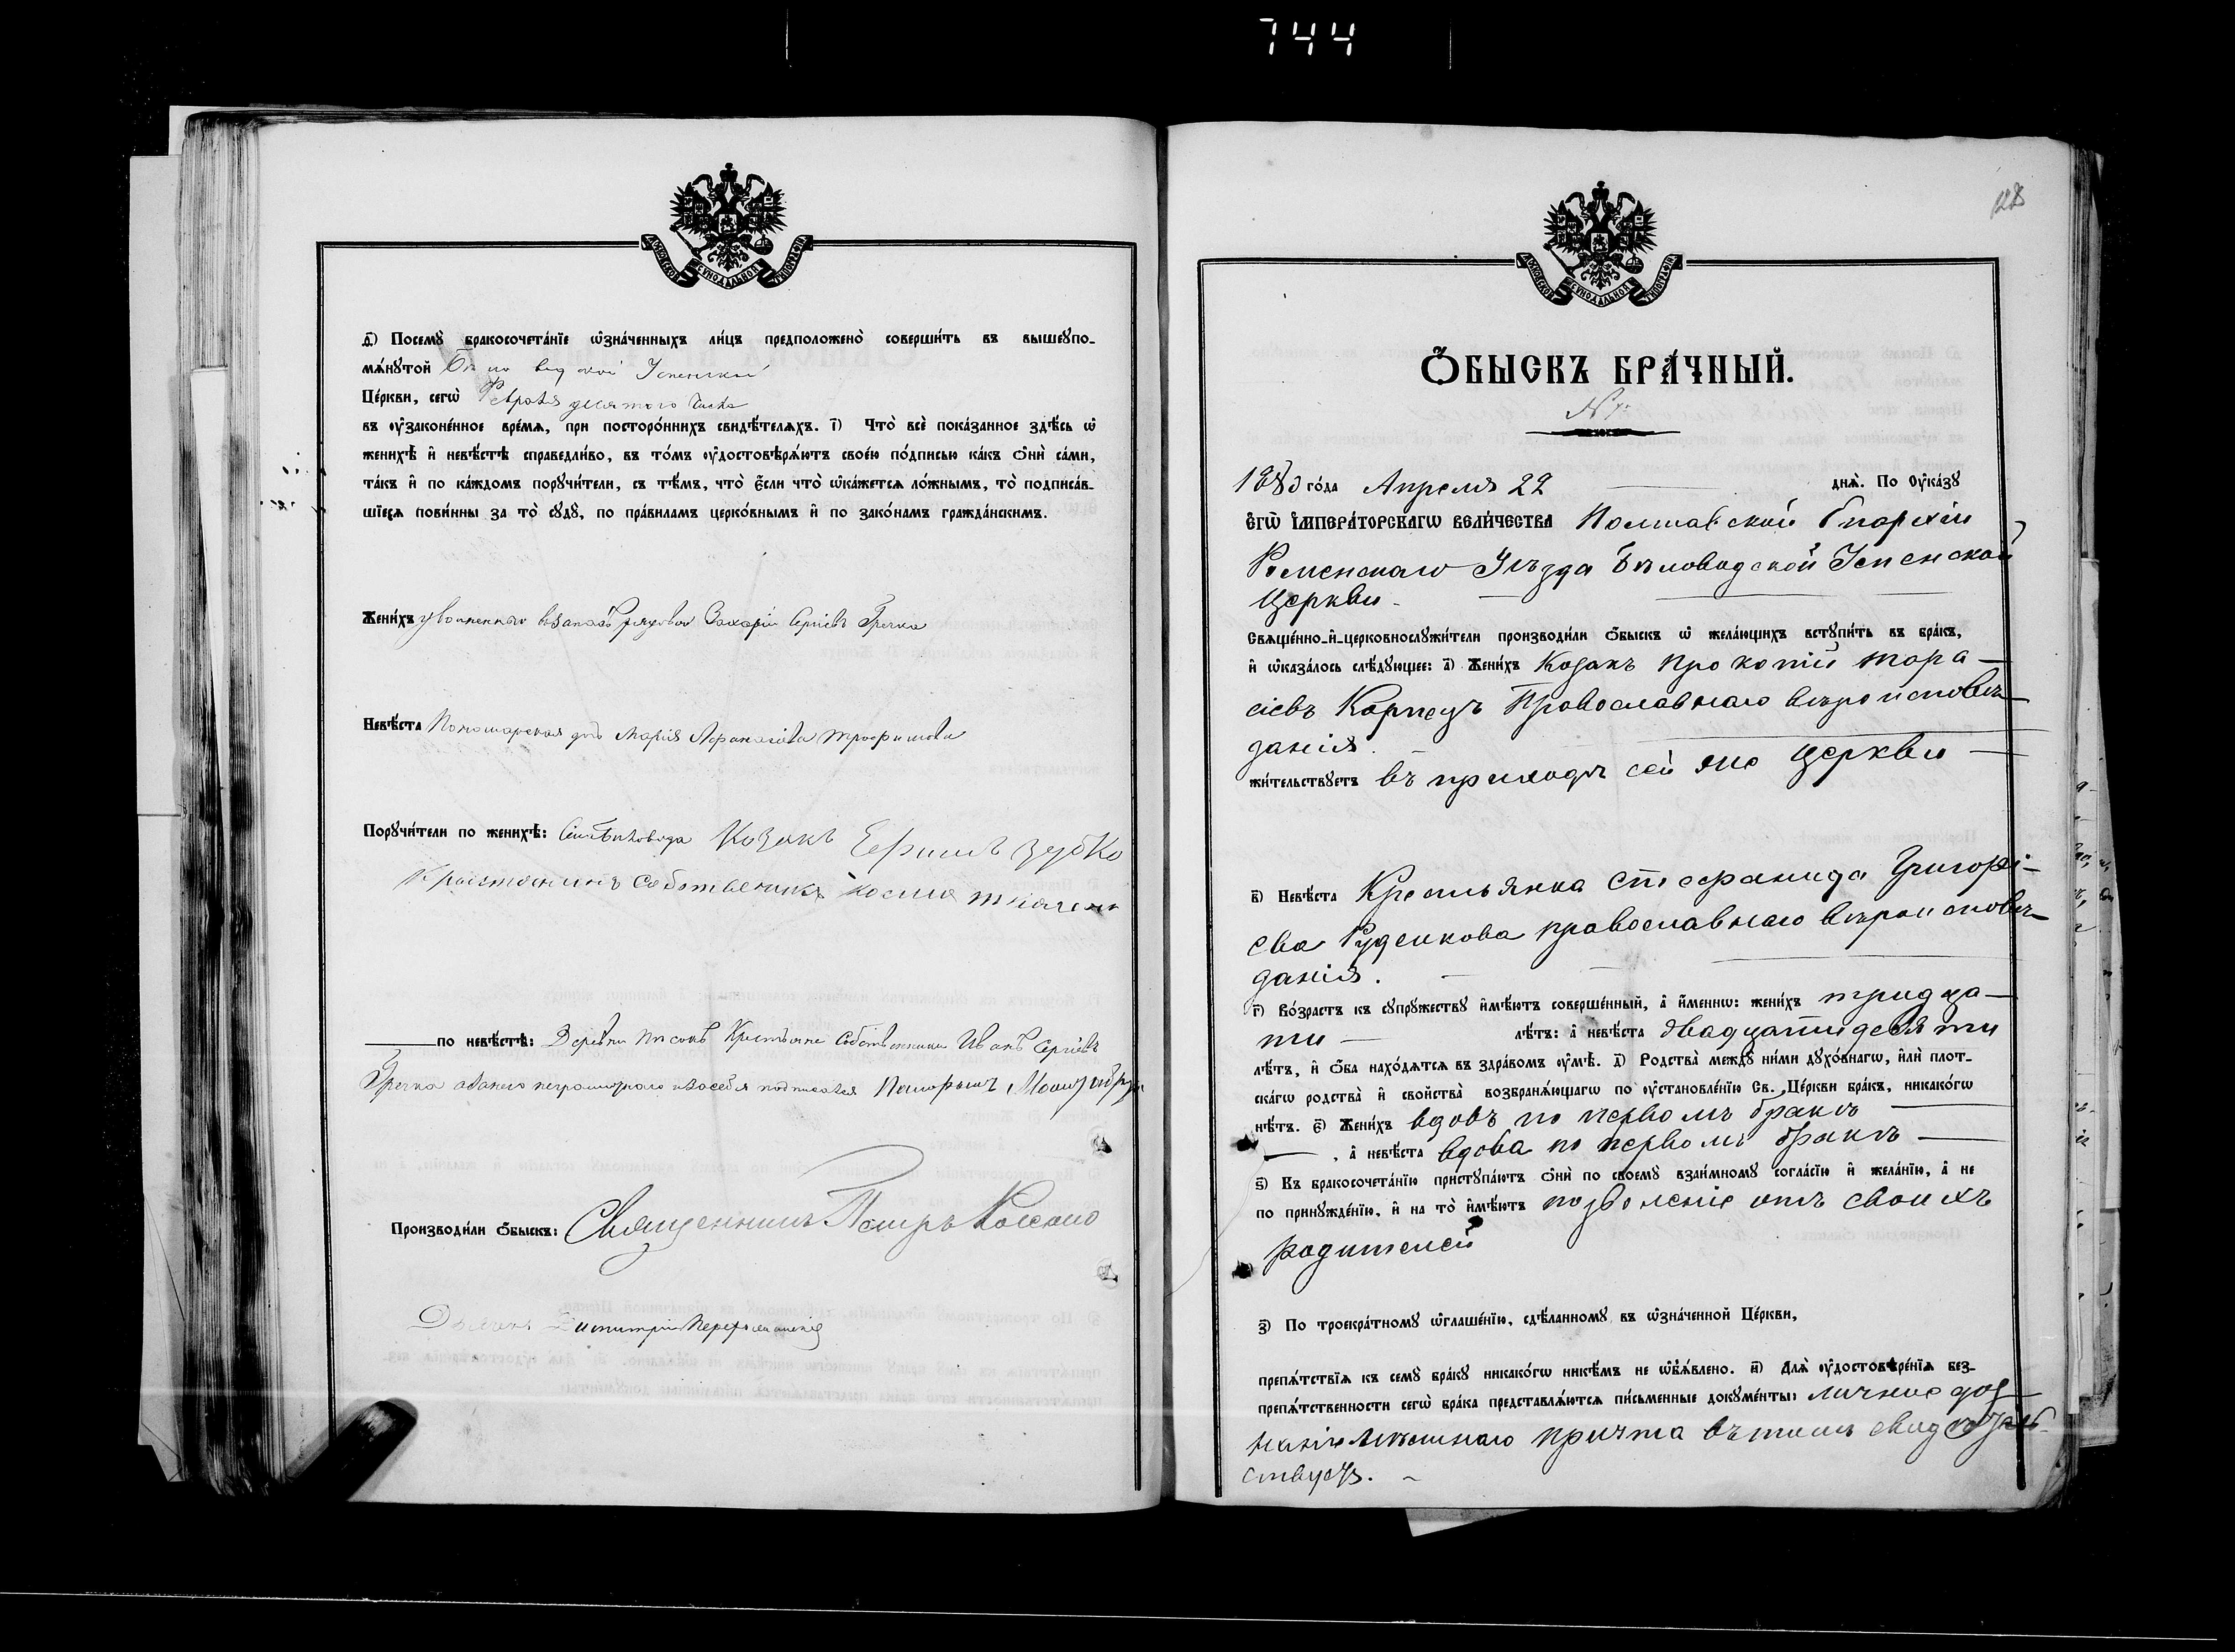 744
МОСКОВСКОЙ СѴНОДАЛЬНОЙ ТИПОГРАФІИ
д҃і) Посемꙋ̀ бракосочета́нїе ѡ҆зна́ченныхъ ли́цъ предположено̀ соверши́ть въ вышеꙋпо-
мѧ́нꙋтой Бѣловодской Успенской
Це́ркви, сегѡ̀ Февраля десятого числа
въ ᲂу҆законе́нное вре́мѧ, при посторо́ннихъ свидѣ́телѧхъ. і҃) Что̀ всѐ пока́занное здѣ́сь ѡ҆
женихѣ̀ и҆ невѣ́стѣ справедли́во, въ то́мъ ᲂу҆достовѣрѧ́ютъ свое́ю по́дписью ка́къ ѻ҆нѝ са́ми,
та́къ и҆ по ка́ждомъ порꙋчи́тели, съ тѣ́мъ, что̀ є҆́сли что̀ ѡ҆ка́жетсѧ ло́жнымъ, то̀ подписа́в-
шїесѧ пови́нны за то̀ сꙋдꙋ̀, по пра́виламъ церко́внымъ и҆ по зако́намъ гражда́нскимъ.
Жени́хъ уволенный въ запасъ рядовой Захарій Сергіевъ Гречка
Невѣ́ста Пономарская дочь Марія Афанасіева Трофимова
Порꙋчи́тели по женихѣ̀: Села Бѣловода Козакъ Ефимъ Зубко
Крестянинъ Собственикъ Косма
по невѣ́стѣ: Деревни Пѣсокъ Крестьяне Собственники Иванъ Сергіевъ
Гречка а вмѣсто неграмотного и за себя подписался
Производи́ли ѻ҆́быскъ: Священникъ Петръ
Дьяконъ Димитрій
128
МОСКОВСКОЙ СѴНОДАЛЬНОЙ ТИПОГРАФІИ
Ѻ҆́БЫСКЪ БРА́ЧНЫЙ.
№
го́да Апреля 22 днѧ̀. По Оу҆ка́зꙋ
Є҆ГѠ̀ И҆МПЕРА́ТОРСКАГѠ ВЕЛИ́ЧЕСТВА Полтавской Епархіи
Роменскаго Уѣзда Бѣловодской Успенской
Церкви
Свѧще́нно-и҆-церковнослꙋжи́тели производи́ли ѻ҆́быскъ ѡ҆ жела́ющихъ встꙋпи́ть въ бра́къ,
и҆ ѡ҆каза́лось слѣ́дꙋющее: а҃) Жени́хъ Козакъ Прокопій Тара-
сіевъ Корпецъ Православнаго вѣроисповѣ-
данія.
жи́тельствꙋетъ въ приходѣ сей же церкви
в҃) Невѣ́ста Крестьянка Стефанида Григорі-
ева Руденкова православнаго вѣроисповѣ-
данія.
г҃) Во́зрастъ къ сꙋпрꙋ́жествꙋ и҆мѣ́ютъ соверше́нный, а҆ и҆́меннѡ: жени́хъ тридца-
ти лѣ́тъ: а҆ невѣ́ста двадцатидевяти
лѣ́тъ, и҆ ѻ҆́ба нахо́дѧтсѧ въ здра́вомъ ᲂу҆мѣ̀. д҃) Родства̀ междꙋ̀ ни́ми дꙋхо́внагѡ, и҆лѝ плот-
ска́гѡ родства̀ и҆ свойства̀ возбранѧ́ющагѡ по ᲂу҆становле́нїю Св. Це́ркви бра́къ, никако́гѡ
нѣ́тъ. є҃) Жени́хъ вдовъ по первомъ бракѣ
, а҆ невѣ́ста вдова по первомъ бракѣ
ѕ҃) Къ бракосочета́нїю пристꙋпа́ютъ ѻ҆нѝ по своемꙋ̀ взаи́мномꙋ согла́сїю и҆ жела́нїю, а҆ не
по принꙋжде́нїю, и҆ на то̀ и҆мѣ́ютъ позволеніе отъ своихъ
родителей
з҃) По троекра́тномꙋ ѡ҆глаше́нїю, сдѣ́ланномꙋ въ ѡ҆зна́ченной Це́ркви,
препѧ́тствїѧ къ семꙋ̀ бра́кꙋ никако́гѡ никѣ́мъ не ѡ҆б̾ѧ́влено. и҃) Длѧ̀ ᲂу҆достовѣре́нїѧ без-
препѧ́тственности сегѡ̀ бра́ка представлѧ́ютсѧ пи́сьменные докꙋме́нты: личное доз-
наніе мѣстнаго причта въ томъ свидѣтель-
ствуетъ.